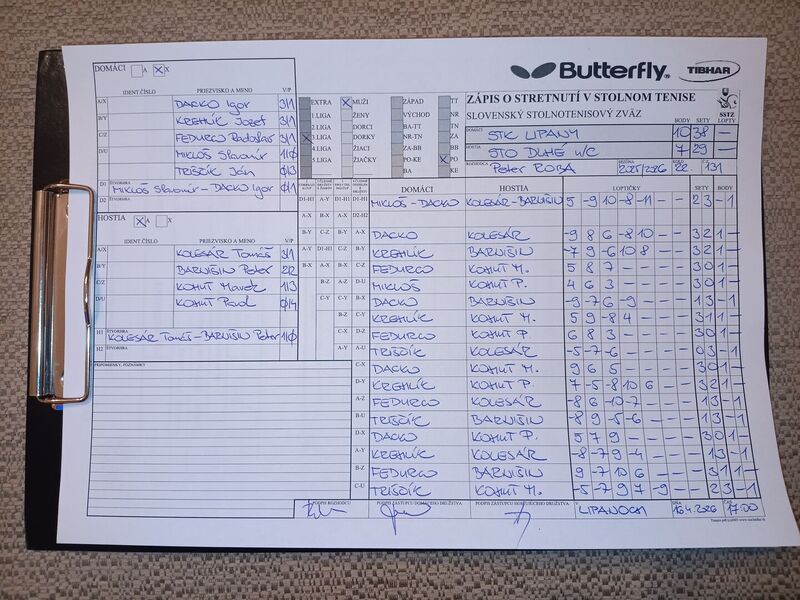 DOMÁCI A X
Butterfly® TIBHAR
IDENT ČÍSLO PRIEZVISKO A MENO V/P
A/X DACKO Igor 3/1
B/Y KREHLÍK Jozef 3/1
C/Z FEDURCO Radoslav 3/1
D/U MIKLOŠ Slavomír 1/0
TRIŠČÍK Ján 0/3
D1 ŠTVORHRA MIKLOŠ Slavomír - DACKO Igor 0/1
D2
EXTRA X MUŽI ZÁPAD TT
1.LIGA ŽENY VÝCHOD NR
2.LIGA DORCI BA-TT TN
X 3.LIGA DORKY NR-TN ZA
4.LIGA ŽIACI ZA-BB BB
5.LIGA ŽIAČKY PO-KE X PO
BA KE
ZÁPIS O STRETNUTÍ V STOLNOM TENISE
SLOVENSKÝ STOLNOTENISOVÝ ZVÄZ
SSTZ
BODY SETY LOPTY
DOMÁCI STK LIPANY 10 38 -
HOSTIA STO DLHÉ n/C 7 29 -
ROZHODCA Peter ROBA SEZÓNA 2025/2026 KOLO 22. Č.Z. 131
HOSTIA X A X
IDENT ČÍSLO PRIEZVISKO A MENO V/P
A/X KOLESÁR Tomáš 3/1
B/Y BARNIŠIN Peter 2/2
C/Z KOHUT Marek 1/3
D/U KOHUT Pavol 0/4
H1 ŠTVORHRA KOLESÁR Tomáš - BARNIŠIN Peter 1/0
H2
PRIPOMIENKY, POZNÁMKY
DOMÁCI HOSTIA LOPTIČKY SETY BODY
D1-H1 MIKLOŠ - DACKO KOLESÁR - BARNIŠIN 5 -9 -10 -8 -11 - - 2 3 - 1
D2-H2
A-X DACKO KOLESÁR -9 8 6 -8 10 - - 3 2 1 -
B-Y KREHLÍK BARNIŠIN -7 9 -6 10 8 - - 3 2 1 -
C-Z FEDURCO KOHUT M. 5 8 7 - - - - 3 0 1 -
D-U MIKLOŠ KOHUT P. 4 6 3 - - - - 3 0 1 -
A-Y DACKO BARNIŠIN -9 -7 6 -9 - - - 1 3 - 1
B-Z KREHLÍK KOHUT M. 5 9 -8 4 - - - 3 1 1 -
C-U FEDURCO KOHUT P. 6 8 3 - - - - 3 0 1 -
D-X TRIŠČÍK KOLESÁR -5 -7 -6 - - - - 0 3 - 1
A-Z DACKO KOHUT M. 9 6 5 - - - - 3 0 1 -
B-U KREHLÍK KOHUT P. 7 -5 -8 10 6 - - 3 2 1 -
C-X FEDURCO KOLESÁR -8 6 -10 -7 - - - 1 3 - 1
D-Y TRIŠČÍK BARNIŠIN -8 9 -5 -6 - - - 1 3 - 1
A-U DACKO KOHUT P. 5 7 9 - - - - 3 0 1 -
B-X KREHLÍK KOLESÁR -8 -7 9 -4 - - - 1 3 - 1
C-Y FEDURCO BARNIŠIN 9 -7 10 6 - - - 3 1 1 -
D-Z TRIŠČÍK KOHUT M. -5 -7 9 7 -9 - - 2 3 - 1
PODPIS ROZHODCU PODPIS ZÁSTUPCU DOMÁCEHO DRUŽSTVA PODPIS ZÁSTUPCU HOSŤUJÚCEHO DRUŽSTVA V LIPANOCH DŇA 16.4.2026 ČAS 17.00